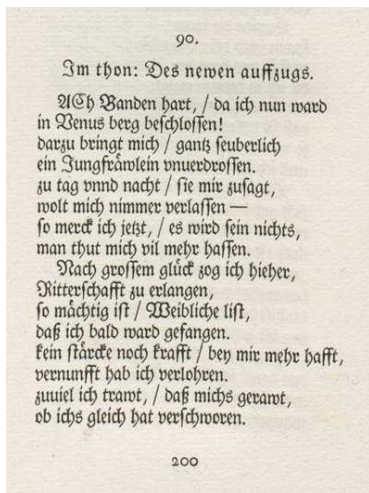 90.
Im thon: Des newen auffzugs.
ACh Banden hart, / da ich nun ward
in Venus berg beschlossen!
darzu bringt mich / gantz seuberlich
ein Jungfräwlein vnuerdrossen.
zu tag vnnd nacht / sie mir zusagt,
wolt mich nimmer verlassen —
so merck ich jetzt, / es wird sein nichts,
man thut mich vil mehr hassen.
Nach grossem glück zog ich hieher,
Ritterschafft zu erlangen,
so mächtig ist / Weibliche list,
daß ich bald ward gefangen.
kein stärcke noch krafft / bey mir mehr hafft,
vernunfft hab ich verlohren.
zuuiel ich trawt, / daß michs gerawt,
ob ichs gleich hat verschworen.
200